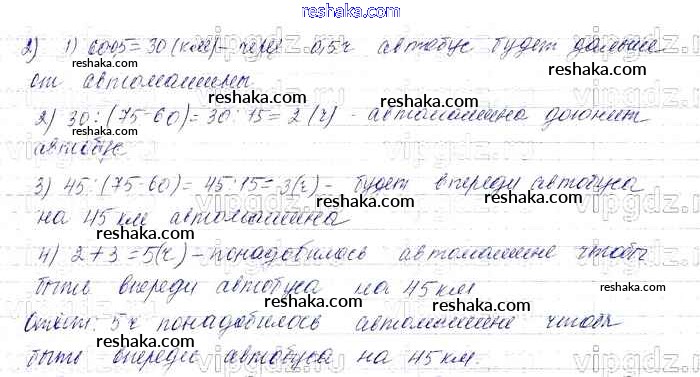 reshaka.com
2) 1) 60·0,5=30 (км) – через 0,5ч автобус будет дальше
от автомашины.
reshaka.com reshaka.com
2) 30:(75-60)=30:15=2 (ч) - автомашина догонит
автобус
reshaka.com reshaka.com
3) 45:(75-60)=45:15=3(ч) - будет впереди автобуса
reshaka.com reshaka.com
на 45 км автомашина
reshaka.com reshaka.com
4) 2+3=5(ч) – понадобилось автомашине чтобы
быть впереди автобуса на 45 км
reshaka.com reshaka.com
Ответ: 5 ч понадобилось автомашине чтобы
reshaka.com reshaka.com
быть впереди автобуса на 45 км.
reshaka.com
vipgdz.ru